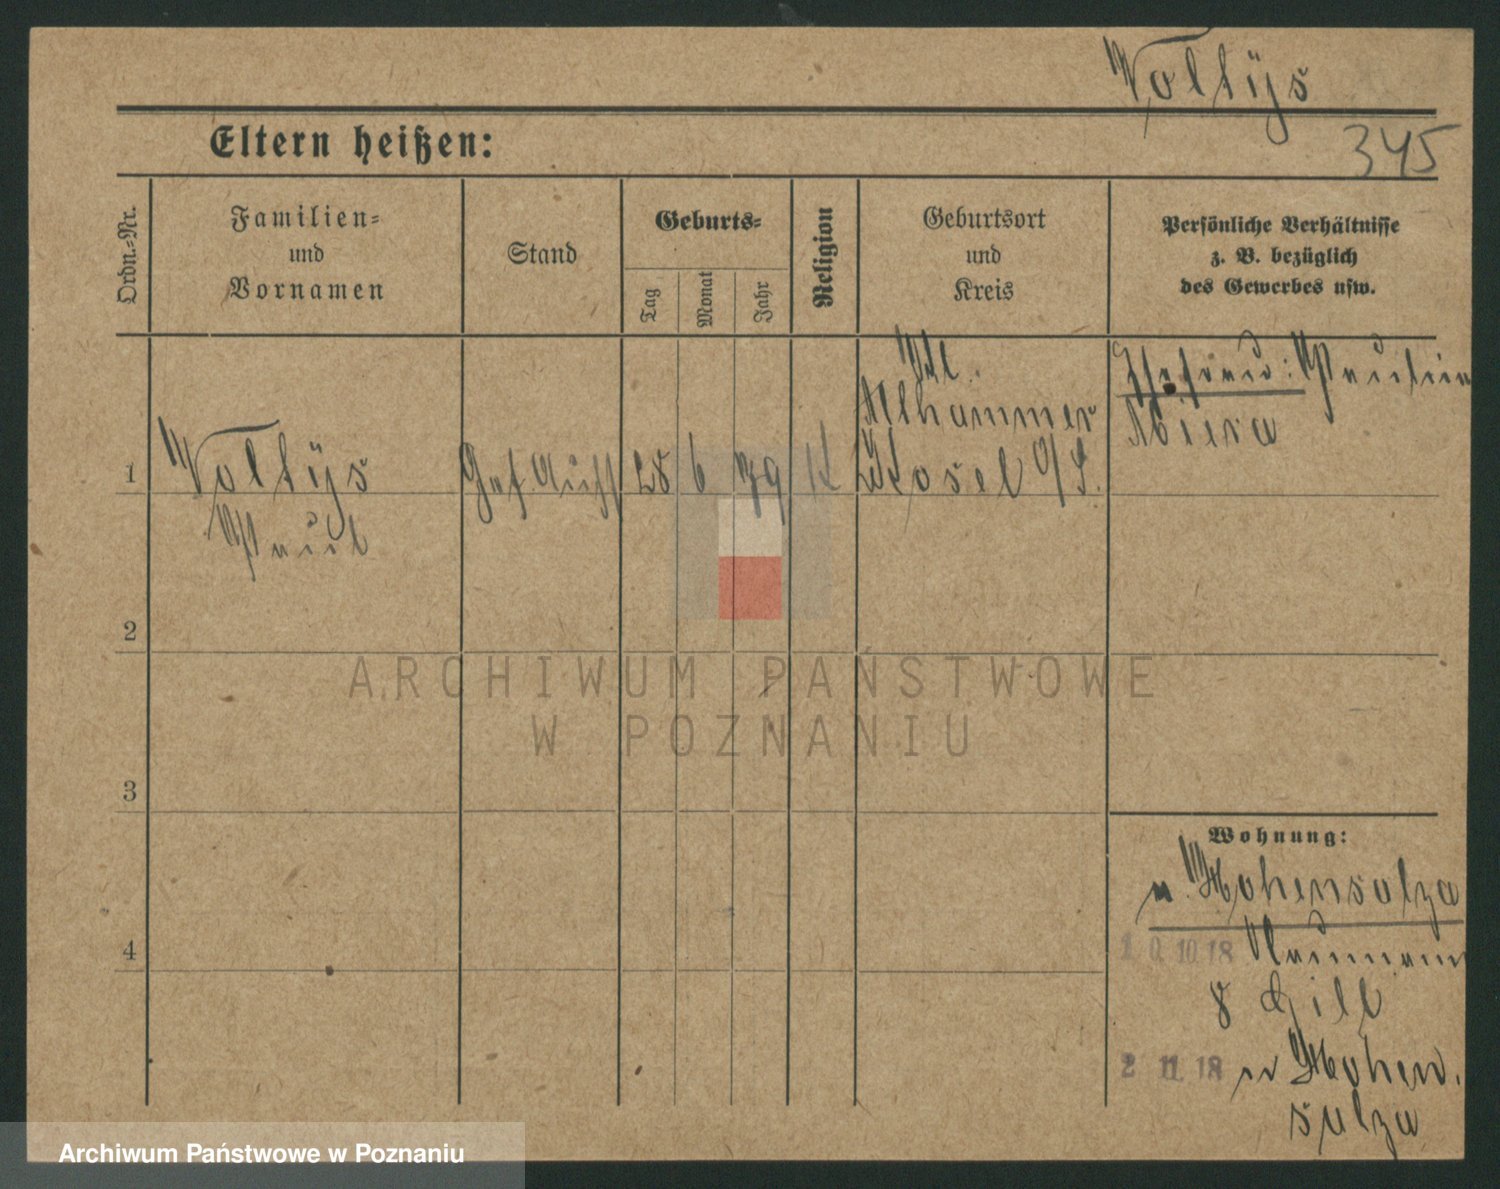 Woltÿs
345
Eltern heißen:
Ordn.-Nr.
Familien-
und
Vornamen
Stand
Geburts-
Tag
Monat
Jahr
Religion
Geburtsort
und
Kreis
Persönliche Verhältnisse
z. B. bezüglich
des Gewerbes usw.
1
Woltÿs
Paul
Gef. Aufs
28
6
79
K
Kl.
Althammer
Kosel O/S.
Ehefrau: Pauline
Miera
2
3
4
Wohnung:
n. Hohensalza
10.10.18 Naumann
8 Gill
2 11. 18 n Hohen
salza
ARCHIWUM PAŃSTWOWE
W POZNANIU
Archiwum Państwowe w Poznaniu